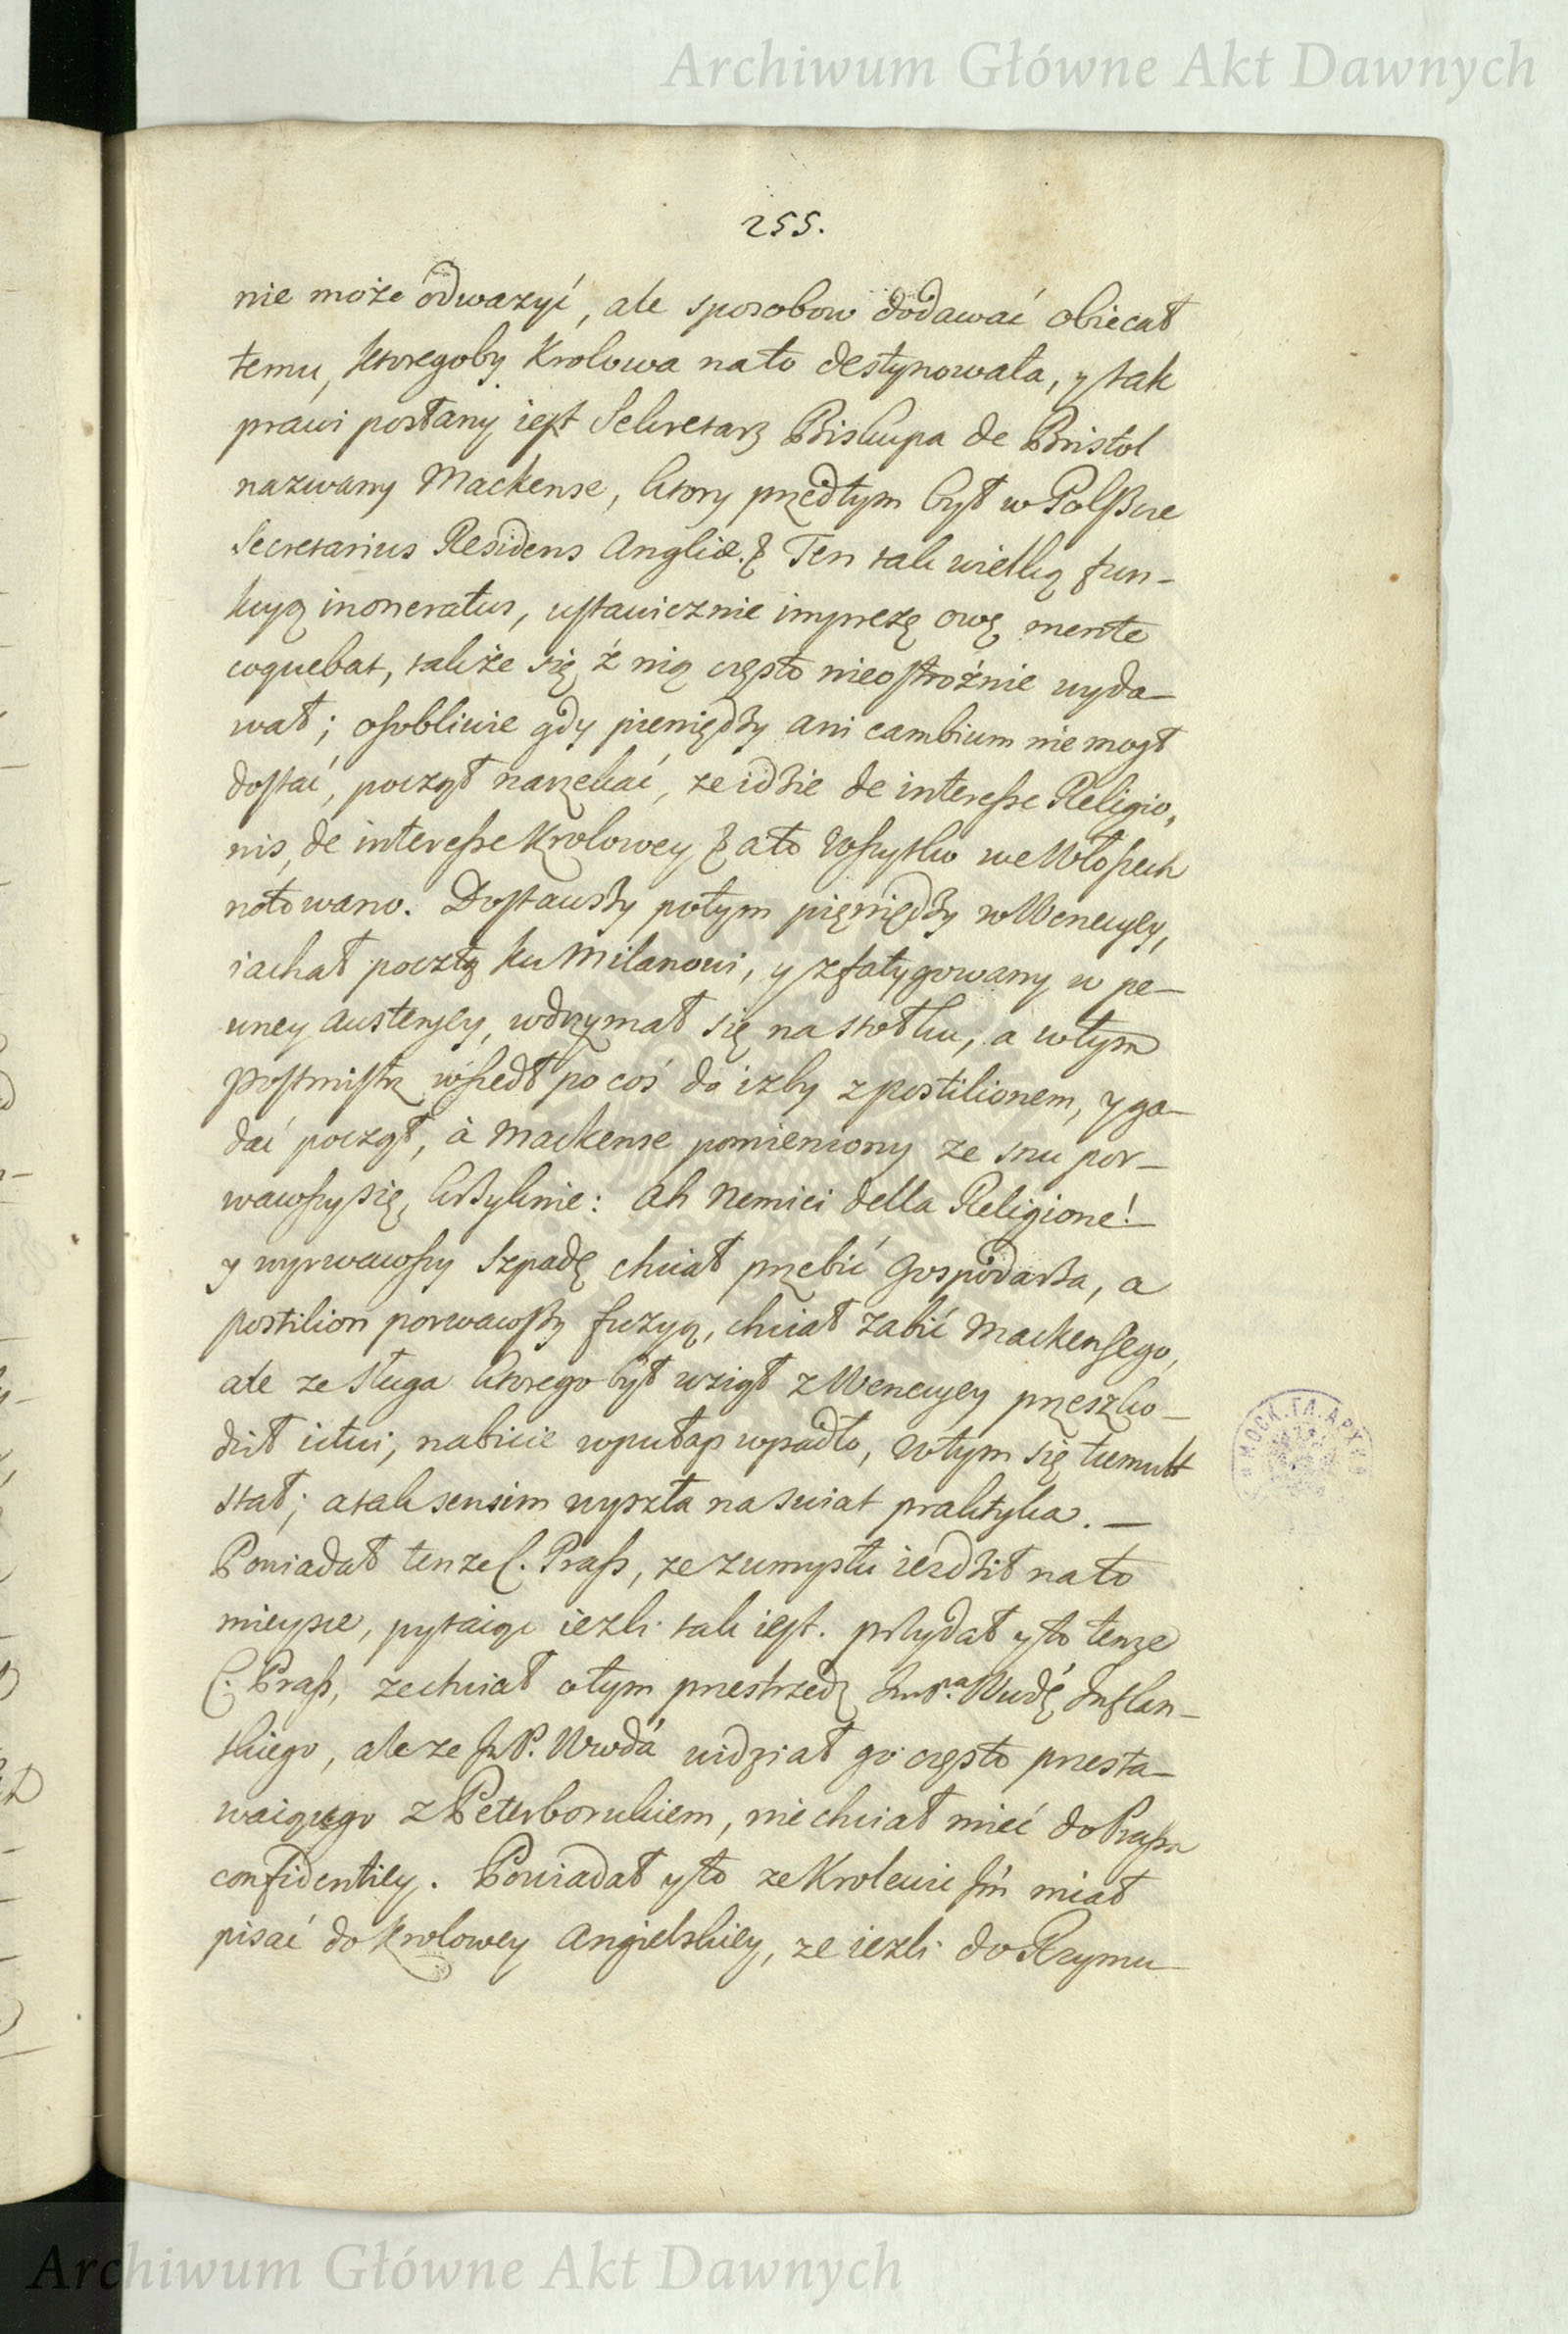 Archiwum Główne Akt Dawnych
255.
nie może odwazyć, ale sposobow dodawać obiecał
temu, ktoregoby Krolowa na to destynowała, y tak
prawi posłany iest Sekretarz Biskupa de Bristol
nazwany Mackense, ktory przedtym był w Polszcze
Secretarius Residens Angliæ. & Ten tak wielką fun-
kcyą inoneratus, ustawicznie imprezę owę mente
coquebat, także się z nią często nieostrożnie wyda-
wał; osobliwie gdy pieniędzy ani cambium nie mogł
dostać, począł narzekać, ze idzie de interesse Religio,
nis, de interesse Krolowey & a to wszytko we Włoszech
notowano. Dostawszy potym pięniędzy w Wenecyey,
iachał pocztą ku Milanowi, y zfatygowany w pe-
wney Austeryey, wdrzymał się na stołku, a w tym
Postmistrz wszedł po coś do izby z postilionem, y ga-
dać począł, à Mackense pomieniony ze snu por-
wawszy się, krzyknie: Ah Nemici della Religione!
y wyrwawszy szpadę chciał przebić Gospodarza, a
postilion porwawszy fuzyą, chciał zabić Mackensego,
ale ze sługa ktorego był wziął z Wenecyey przeszko-
dził ictui, nabicie w pułap wpadło, w tym się tumult
stał; a tak sensim wyszła na swiat praktyka. —
Powiadał tenze C. Prass, ze zumysłu iezdził na to
mieysce, pytaiąc iezli tak iest. przydał y to tenze
C. Prass, ze chciał o tym przestrzedz Jmp.ª Wwdę Inflan-
tskiego, ale ze Jp. Wwda widział go często przesta-
waiącego z Peterborukiem, nie chciał mieć do Prassa
confidentiey. Powiadał y to ze Krolewic Jm miał
pisać do Krolowey Angielskiey, ze iezli do Rzymu
МОСК. ГЛ. АРХИВ
Archiwum Główne Akt Dawnych